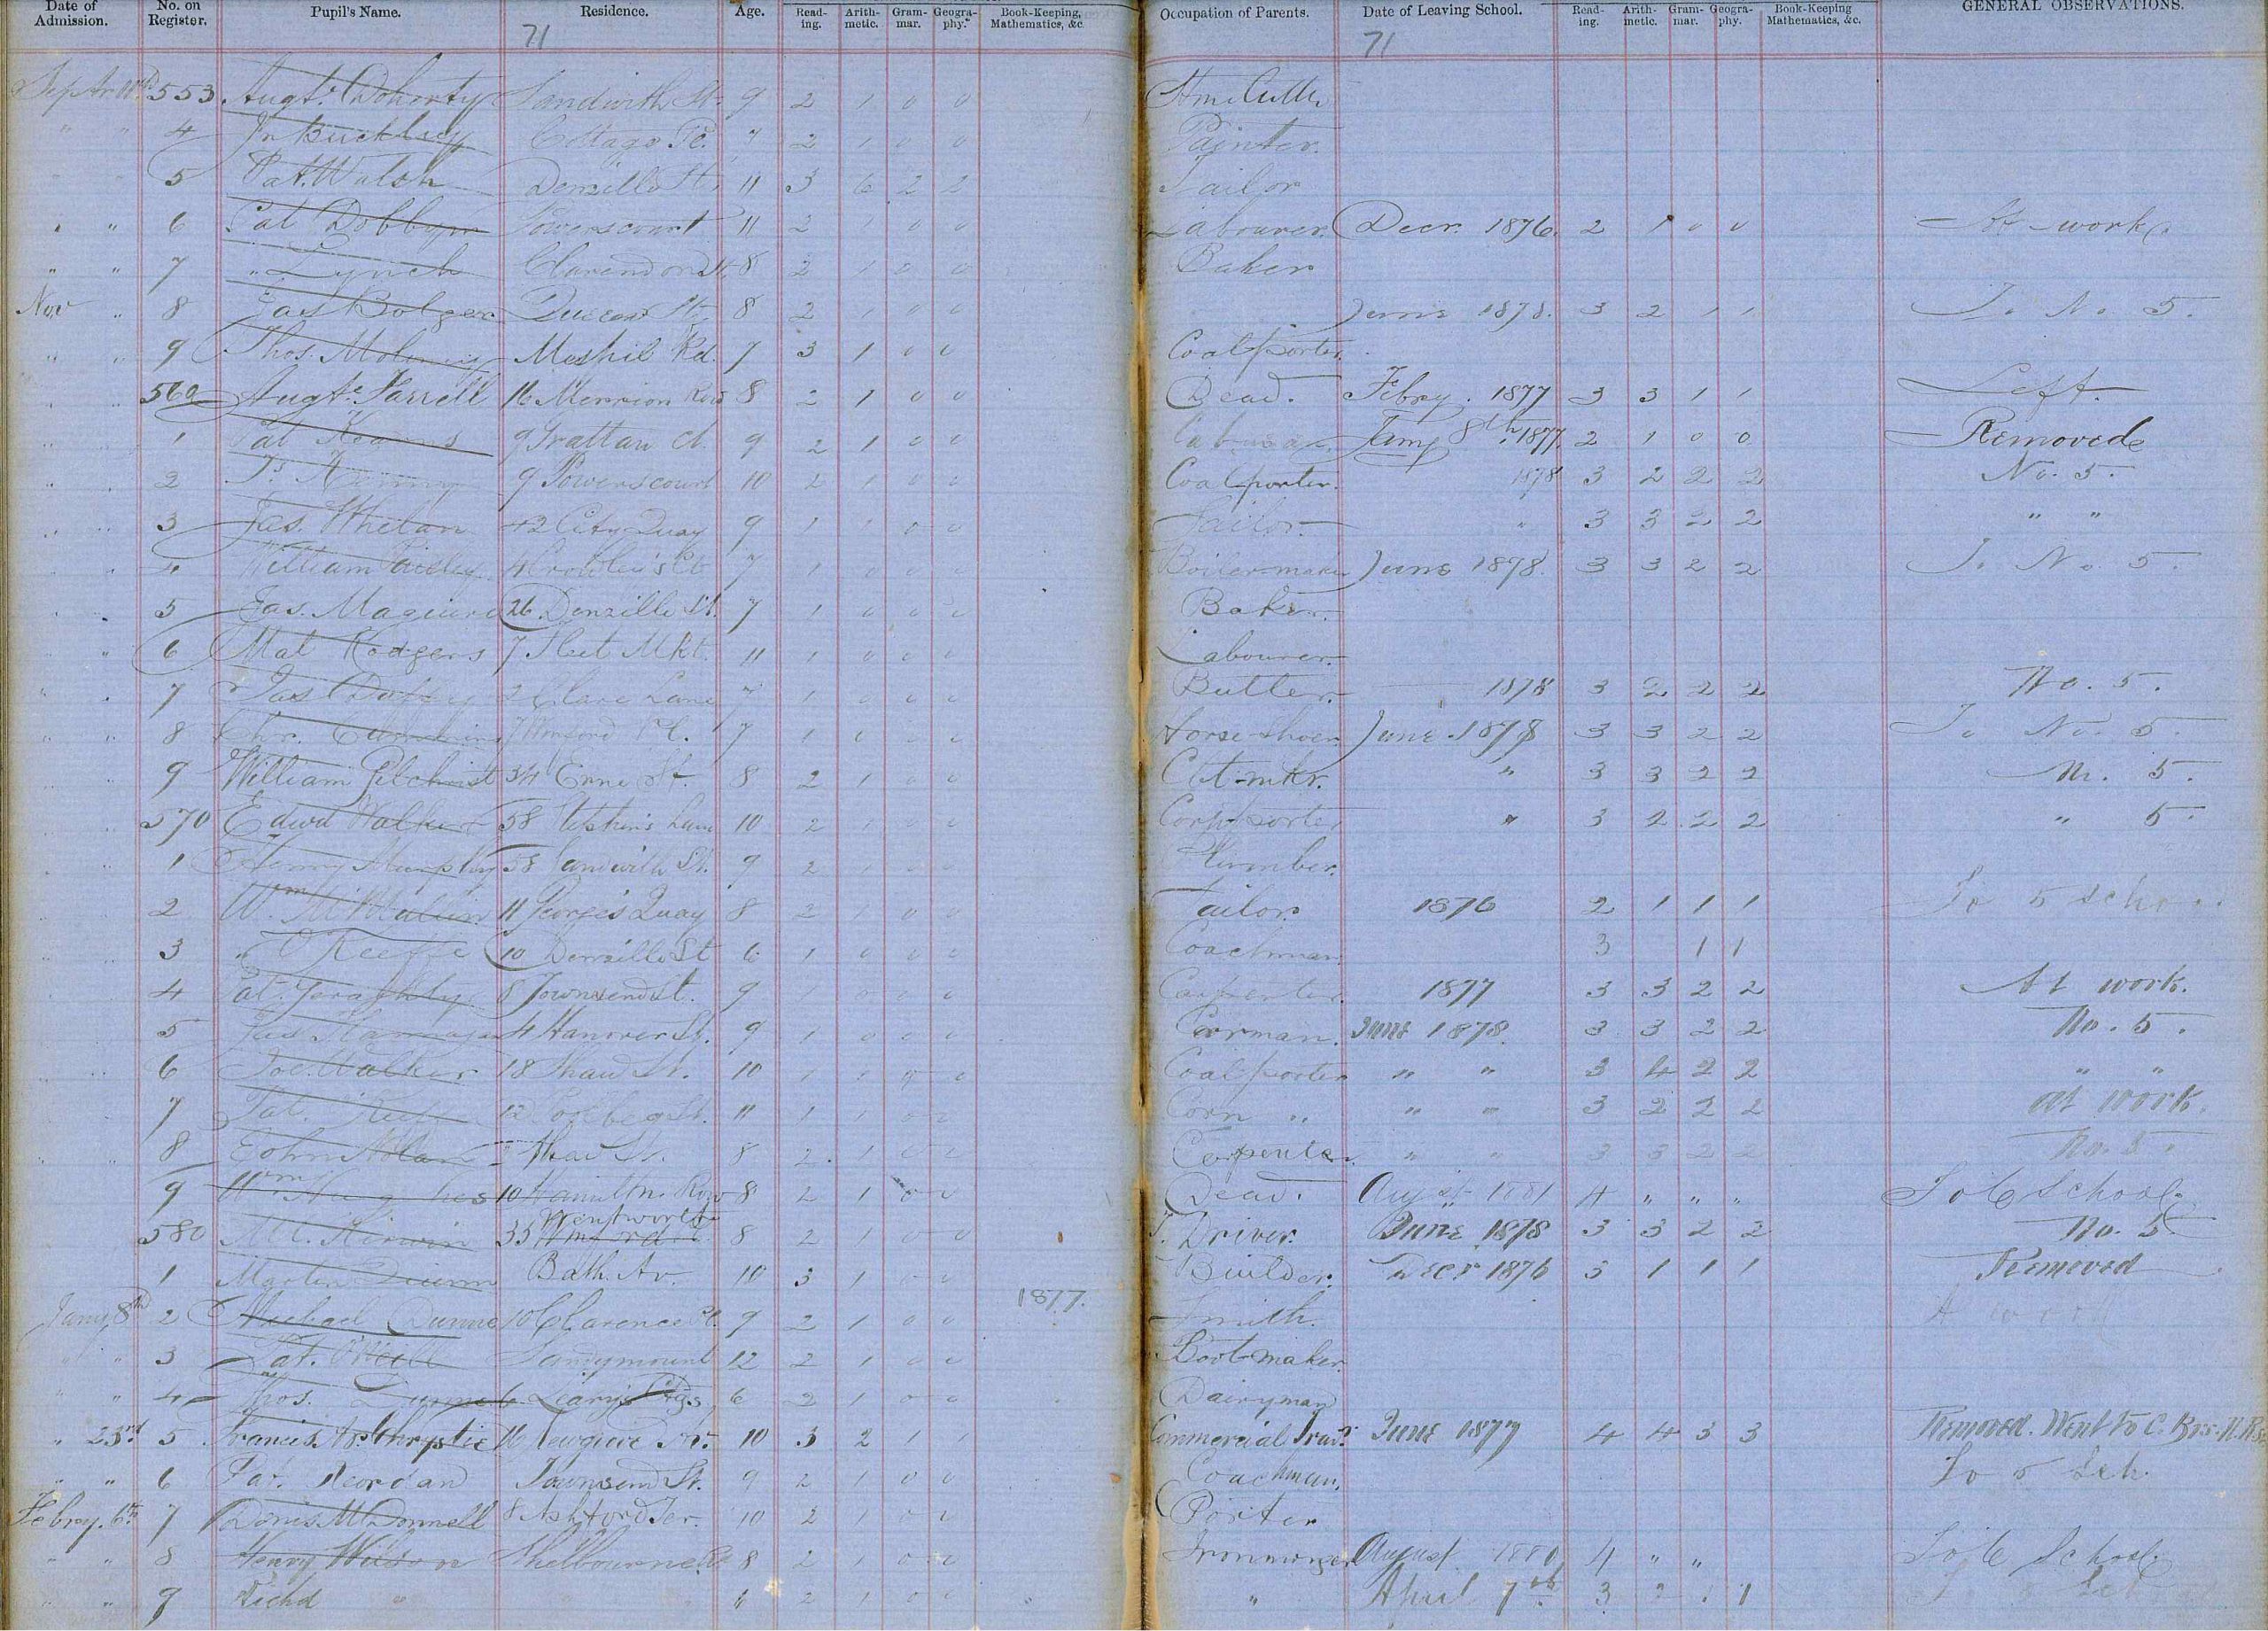 Date of Admission. No. on Register. Pupil's Name. Residence. Age. Read-ing. Arith-metic. Gram-mar. Geogra-phy. Book-Keeping, Mathematics, &c Occupation of Parents. Date of Leaving School. Read-ing. Arith-metic. Gram-mar. Geogra-phy. Book-Keeping Mathematics, &c. GENERAL OBSERVATIONS.
71 71
553 Augt. Doherty Sandwith St. 9 2 1 0 0
" " 4 Jn Buckley Cottage Pl. 7 2 1 0 0 Painter.
5 Pat. Walsh Denzille St. 11 3 6 2 2 Tailor
" " 6 Pat Dobbyn Powerscourt 11 2 1 0 0 Labourer. Decr. 1876. 2 1 0 0 At work
" " 7 " Lynch Clarendon St. 8 2 1 0 0 Baker
Nov " 8 Jas Bolger Queen St. 8 2 1 0 0 June 1878. 3 2 1 1 To No. 5.
" " 9 Thos. Moloney Meshil Rd. 7 3 1 0 0 Coalporter.
560 Augte. Farrell 16 Merrion Row 8 2 1 0 0 Dead. Febry. 1877 3 3 1 1 Left.
1 Pat Kearns 9 Grattan Ct. 9 2 1 0 0 Jany 8th 1877. 2 1 0 0 Removed
2 9 Powerscourt 10 2 1 0 0 Coalporter. 1878 3 2 2 2 No. 5.
3 Jas. Whelan 42 City Quay 9 1 1 0 0 Sailor. " 3 3 2 2 " "
4 William 4 Crowley's Ct 7 1 0 0 0 Boiler-maker June 1878. 3 3 2 2 To No. 5.
5 Jas. Maguire 26. Denzille St. 7 1 0 0 0 Baker.
6 Mat Rodgers 7 Fleet Mkt. 11 1 0 0 0 Labourer.
7 Jas Duffy 2 Clare Lane 7 1 0 0 0 Butler. 1878 3 2 2 2 No. 5.
8 Chr. 7 Pl. 7 1 0 0 0 Horse-Shoer. June 1878 3 3 2 2 To No. 5.
9 William Gilchrist 34 Erne St. 8 2 1 0 0 Cbt-mkr. " 3 3 2 2 No. 5.
570 Edwd Walker 58 Stephen's Lane 10 2 1 0 0 Cornporter " 3 2 2 2 " 5.
1 Henry Murphy 58 Sandwith St. 9 2 1 0 0 Plumber.
2 Wm 11 George's Quay 8 2 1 0 0 Tailor 1876 2 1 1 1 To 5 school
3 " O'Keeffe 10 Denzille St 6 1 0 0 0 Coachman. 3 1 1
4 Pat. Geraghty 8 Townsend St. 9 1 0 0 Carpenter. 1877 3 3 2 2 At work.
5 Jas 4 Hanover St. 9 1 0 0 0 Carman. June 1878. 3 3 2 2 No. 5.
6 Joe. Walker 18 Shaw St. 10 1 1 0 0 Coalporter " " 3 4 2 2 " "
7 Pat. 12 Poolbeg St. 11 1 1 0 0 Corn " " " 3 2 2 2 at work.
8 John Nolan Shaw St. 8 2 1 0 0 Carpenter " " 3 3 2 2 No. 5.
9 Wm Hughes 10 Hamilton Row 8 2 1 0 0 Dead. August 1881 4 " " " To 6 School.
580 Ml. Kirwin 35 Wentworth 8 2 1 0 0 T. Driver. June 1878 3 3 2 2 No. 5
1 Martin Quinn Bath Av. 10 3 1 0 0 Builder. Decr 1876 3 1 1 1 Removed
1877.
Jany 8th 2 Michael Dunne 10 Clarence Pl. 9 2 1 0 0 Smith.
" " 3 Pat. O'Neill Sandymount 12 2 1 0 0 Bootmaker.
" " 4 Thos. Dunne 6 Leary's Ctgs 6 2 1 0 0 Dairyman
" 23rd 5 Francis A. Chrystie 16 Newgrove Av. 10 3 2 1 1 Commercial Travr. June 1877 4 4 3 3 Removed. Went to C. Bros.
" " 6 Pat. Reordan Townsend St. 9 2 1 0 0 Coachman. To 5 Sch.
Febry. 6th 7 Denis McDonnell 8 Ashford Ter. 10 2 1 0 0 Porter
" " 8 Henry Wilson Shelbourne Rd 8 2 1 0 0 Ironmonger August 1880 4 " " To 6 School.
" " 9 Richd " " 6 2 1 0 0 " April 7th 3 2 1 1